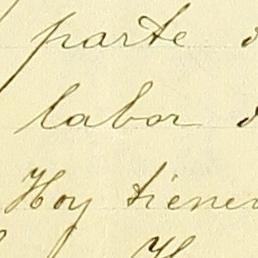 parte
labor
Hoy tienen